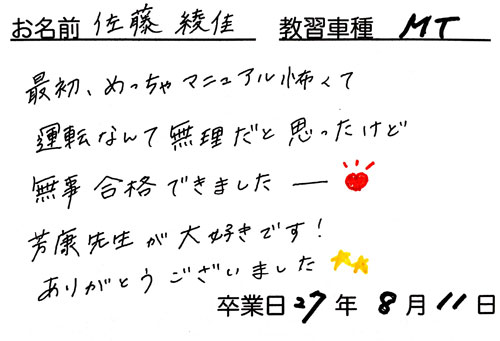 お名前 佐藤 綾佳 教習車種 MT
最初、めっちゃマニュアル怖くて
運転なんて無理だと思ったけど
無事合格できました ―
芳康先生が大好きです!
ありがとうございました
卒業日27年 8月11日